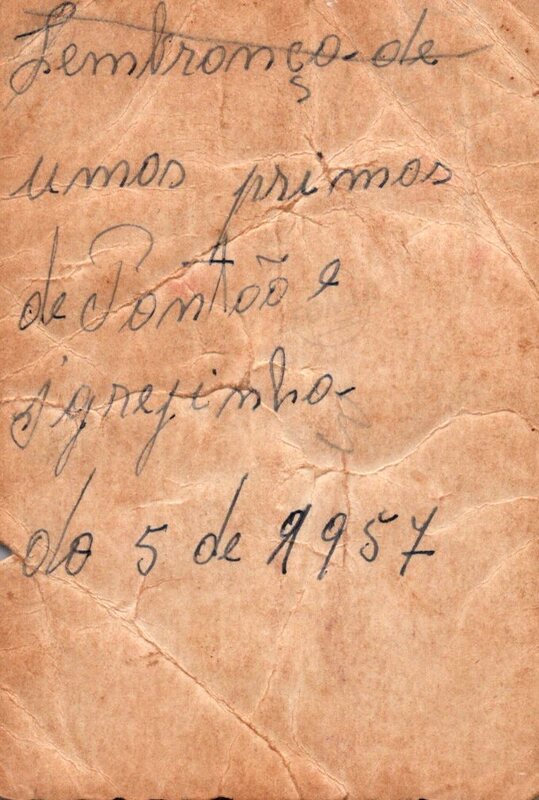 Lembrança de
umas primas
de Pontão e
Igrejinha
do 5 de 1957